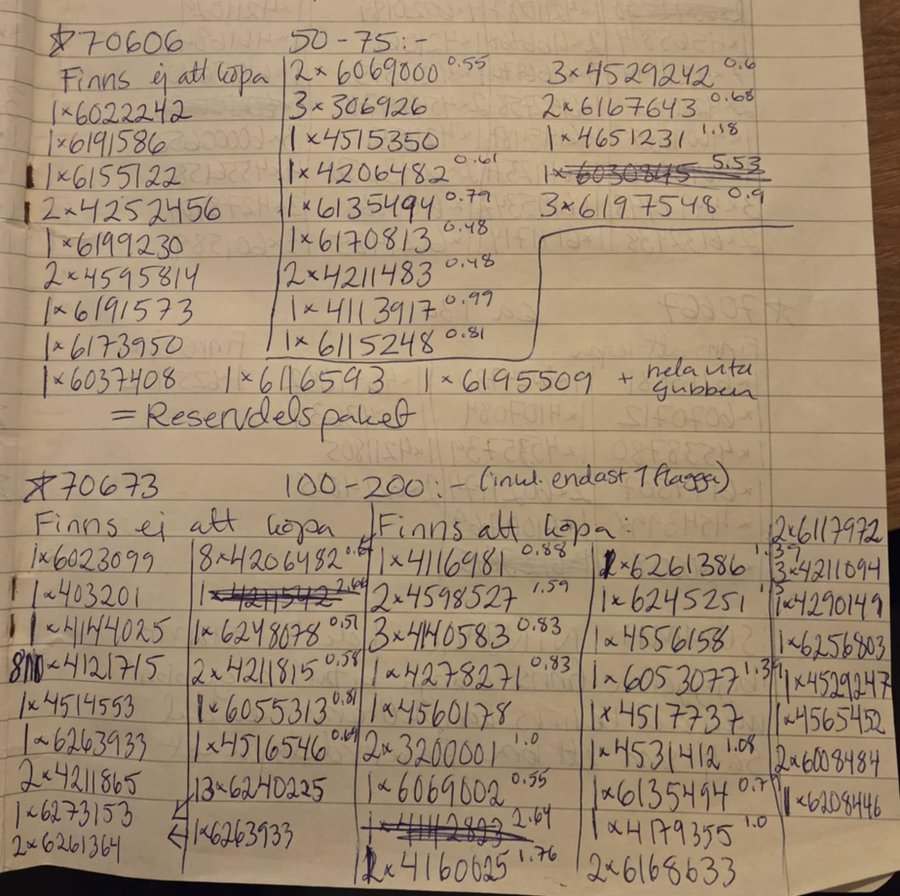 ☆70606 50-75:-
Finns ej att köpa
1×6022242
1×6191586
1×6155122
2×4252456
1×6199230
2×4595814
1×6191573
1×6173950
2×6069000 0.55
3×306926
1×4515350
1×4206482 0.61
1×6135494 0.79
1×6170813 0.48
2×4211483 0.48
1×4113917 0.99
1×6115248 0.81
3×4529242 0.6
2×6167643 0.68
1×4651231 1.18
1×6030845 5.53
3×6197548 0.9
1×6037408 1×6116593 1×6195509 + hela vita gubben
= Reservdelspaket
☆70673 100-200:- (inkl. endast 1 flagga)
Finns ej att köpa
1×6023099
1×403201
1×4144025
8×4121715
1×4514553
1×6263933
2×4211865
1×6273153
2×6261364
8×4206482
1×4211542 2.66
1×6248078 0.51
2×4211815 0.58
1×6055313 0.81
1×4516546 0.69
13×6240225
1×6263933
Finns att köpa:
1×4116981 0.88
2×4598527 1.59
3×4140583 0.83
1×4278271 0.83
1×4560178
2×3200001 1.0
1×6069002 0.55
2.64
2×4160625 1.76
2×6261386
1×6245251
1×4556158
1×6053077 1.39
1×4517737
1×4531412 1.08
1×6135494 0.79
1×4179355 1.0
2×6168633
2×6117972
3×4211094
1×4290149
1×6256803
1×4529247
1×4565452
2×6008484
1×6208446